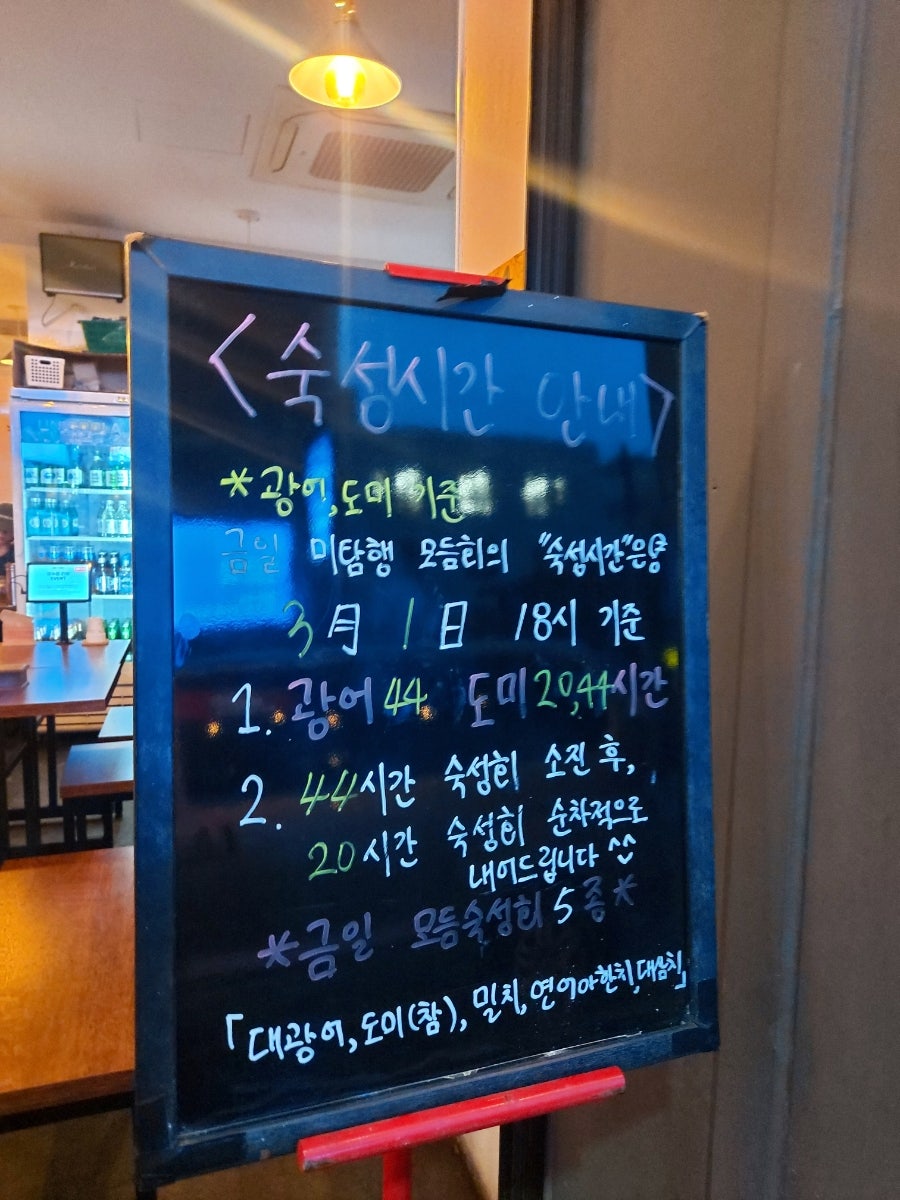 <숙성시간 안내>
*광어,도미 기준
금일 미탐행 모듬회의 "숙성시간"은
3月 1日 18시 기준
1. 광어 44 도미 20,44시간
2. 44시간 숙성회 소진 후,
20시간 숙성회 순차적으로
내어드립니다 ^^
*금일 모듬숙성회 5종*
「대광어, 도미(참), 밀치, 연어아한치, 대삼치」